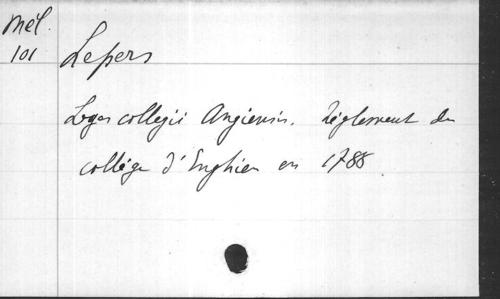 Mél.
101
Lepers
Leges collegii Angiensis. Règlement du
collège d'Enghien en 1788